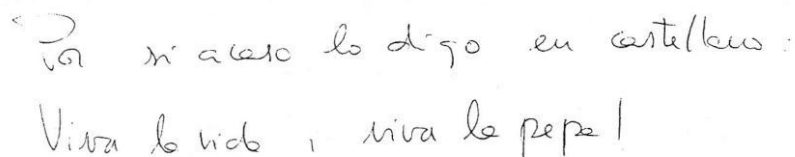 Por si acaso lo digo en castellano:
Viva la vida, viva la pepa!